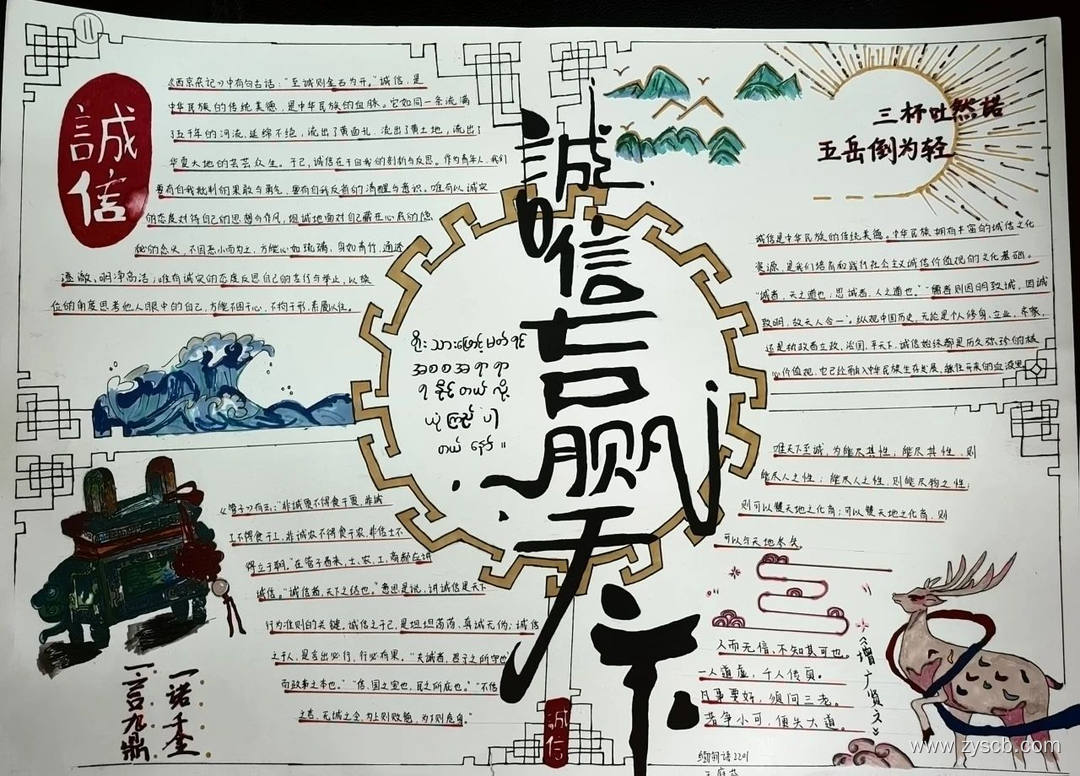 11
誠信
《西京杂记》中有句古话："至诚则金石为开。"诚信,是
中华民族的传统美德,是中华民族的血脉。它如同一条流淌
了五千年的河流,延绵不绝,流出了黄面孔,流出了黄土地,流出了
华夏大地的芸芸众生。于己,诚信在于自我的剖析与反思。作为青年人,我们
要有自我批判的果敢与勇气,要有自我反省的清醒与意识,唯有以诚实
的态度对待自己的思想与作风,坦诚地面对自己藏在心底的隐
秘的念头,不因恶小而为之,方能心如琉璃,身如青竹,通透
澄澈,明净高洁;唯有诚实的态度反思自己的言行与举止,以换
位的角度思考他人眼中的自己,方能不困于心,不拘于形,素履以往。
三杯吐然诺
五岳倒为轻
诚信是中华民族的传统美德。中华民族拥有丰富的诚信文化
资源,是我们培育和践行社会主义诚信价值观的文化基础。
"诚者,天之道也,思诚者,人之道也。""儒者则因明致诚,因诚
致明,故天人合一"。纵观中国历史,无论是个人修身、立业、齐家,
还是执政者立政、治国、平天下,诚信始终都是历久弥珍的核
心价值观,它已经融入中华民族生存发展、继往开来的血液里
誠信言赢天下
《管子》有云:"非诚贾不得食于贾,非诚
工不得食于工,非诚农不得食于农,非信士不
得立于朝。"在管子看来,士、农、工、商都应讲
诚信。"诚信者,天下之结也。"意思是说,讲诚信是天下
行为准则的关键。诚信之于己,是坦坦荡荡,真诚无伪;诚信
之于人,是言出必行,行必有果。"夫诚者,君子之所守也
而政事之本也。""信,国之宝也,民之所庇也。""不信
之言,无诚之令,为上则败绩,为下则危身。"
一诺千金
一言九鼎
唯天下至诚,为能尽其性;能尽其性,则
能尽人之性;能尽人之性,则能尽物之性;
则可以赞天地之化育;可以赞天地之化育,则
可以与天地参矣
人而无信,不知其可也。
一人道虚,千人传真。
凡事要好,须问三老。
若争小可,便失大道。
《增广贤文》
诚信
缅甸语2201
www.zyscb.com